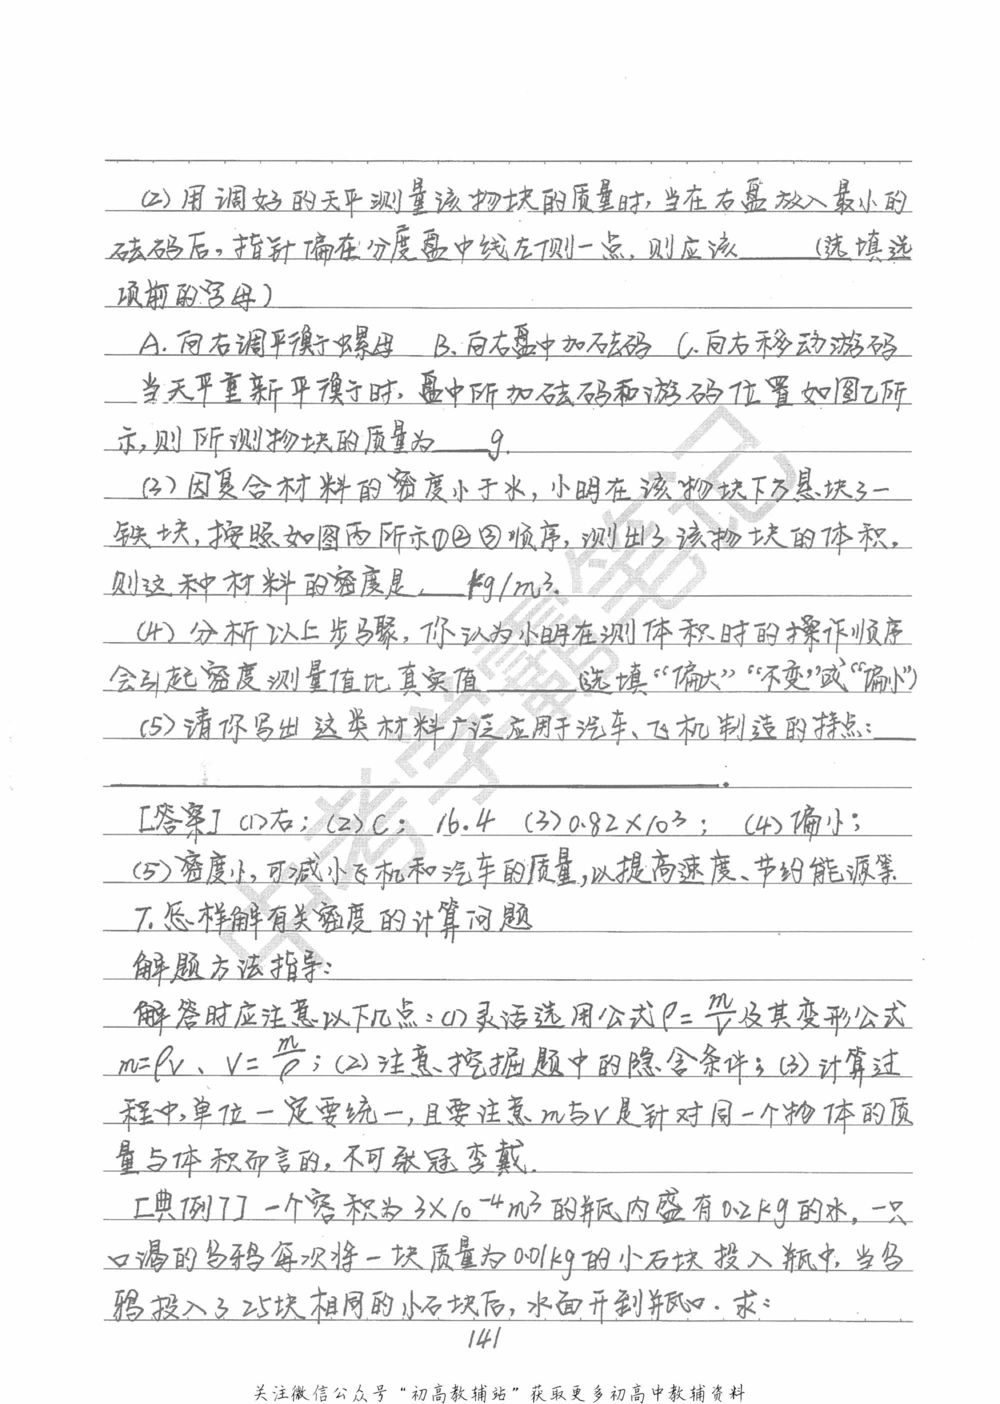 (2)用调好的天平测量该物块的质量时,当在右盘放入最小的
砝码后,指针偏在分度盘中线左侧一点,则应该______(选填选
项前的字母)
A.向右调平衡螺母 B.向右盘中加砝码 C.向右移动游码
当天平重新平衡时,盘中所加砝码和游码位置如图乙所
示,则所测物块的质量为___g.
(3)因复合材料的密度小于水,小明在该物块下方悬块了一
铁块,按照如图丙所示①②③顺序,测出了该物块的体积,
则这种材料的密度是.__kg/m³.
(4)分析以上步骤,你认为小明在测体积时的操作顺序
会引起密度测量值比真实值______(选填“偏大”“不变”或“偏小”)
(5)请你写出这类材料广泛应用于汽车、飞机制造的特点:___
______________________________.
[答案](1)右;(2)C; 16.4 (3)0.82×10³; (4)偏小;
(5)密度小,可减小飞机和汽车的质量,以提高速度、节约能源等
7.怎样解有关密度的计算问题
解题方法指导:
解答时应注意以下几点:(1)灵活选用公式ρ=m/V及其变形公式
m=ρV、V=m/ρ;(2)注意挖掘题中的隐含条件;(3)计算过
程中,单位一定要统一,且要注意m与V是针对同一个物体的质
量与体积而言的,不可张冠李戴.
[典例7]一个容积为3×10⁻⁴m³的瓶内盛有0.2kg的水,一只
口渴的乌鸦每次将一块质量为0.01kg的小石块投入瓶中,当乌
鸦投入了25块相同的小石块后,水面升到瓶口.求:
141
中考学霸笔记
关注微信公众号“初高教辅站”获取更多初高中教辅资料